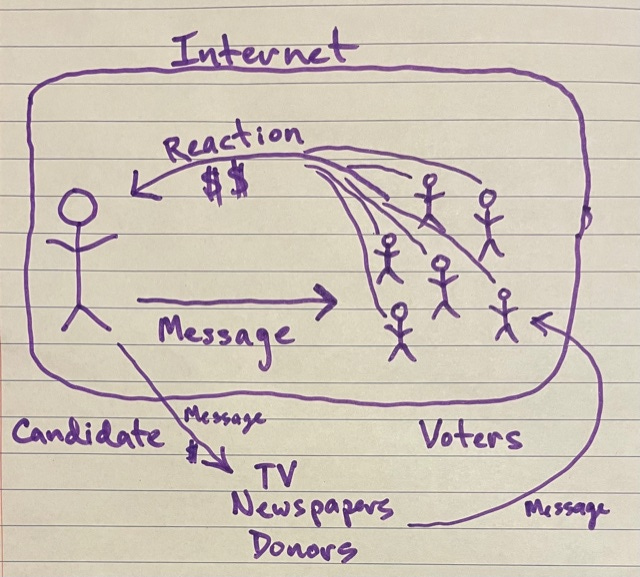 Internet
Reaction
$$
Message
Candidate
Message
$
Voters
TV
Newspapers
Donors
Message